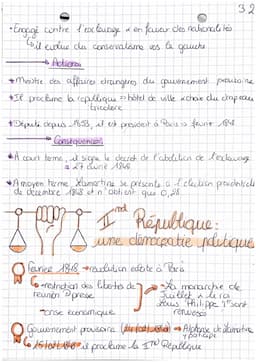 32
• Engagé contre l'esclavage & en faveur des nationalités
↳ il évolue du conservatisme vers la gauche
→ Actions
• Ministre des affaires étrangères du gouvernement provisoire
• Il proclame la république → hôtel de ville & choix du drapeau
tricolore
• Député depuis 1833, il est président à Paris → février 1848
→ Conséquences
• A court terme, il signe le décret de l'abolition de l'esclavage
27 avril 1848
• A moyen terme, Lamartine se présente à l'élection présidentielle
de décembre 1848 et n'obtient que 0,28.
II nde République :
une démocratie politique
Février 1848 → révolution éclate à Paris
↳ restriction des libertés de
réunion & presse
→ La monarchie de
Juillet & le roi
Louis Philippe 1er sont
renversés
→ crise économique
Gouvernement provisoire → Alphonse de Lamartine
↳ il proclame la IInde République